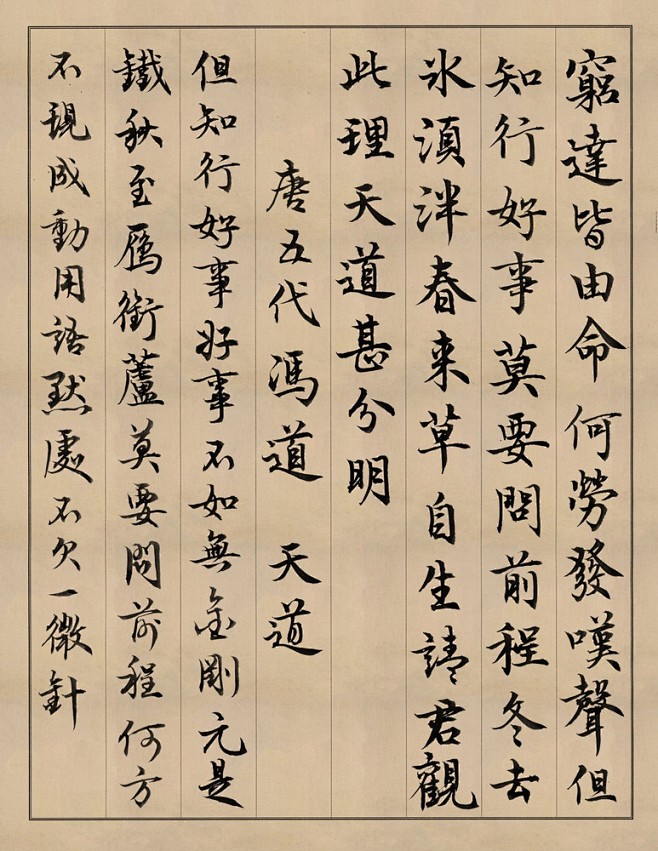 窮達皆由命何勞發嘆聲但
知行好事莫要問前程冬去
氷須泮春来草自生請君觀
此理天道甚分明
唐五代馮道 天道
但知行好事好事不如無金剛元是
鐵秋至鴈銜蘆莫要問前程何方
不現成動用語默處不欠一微針